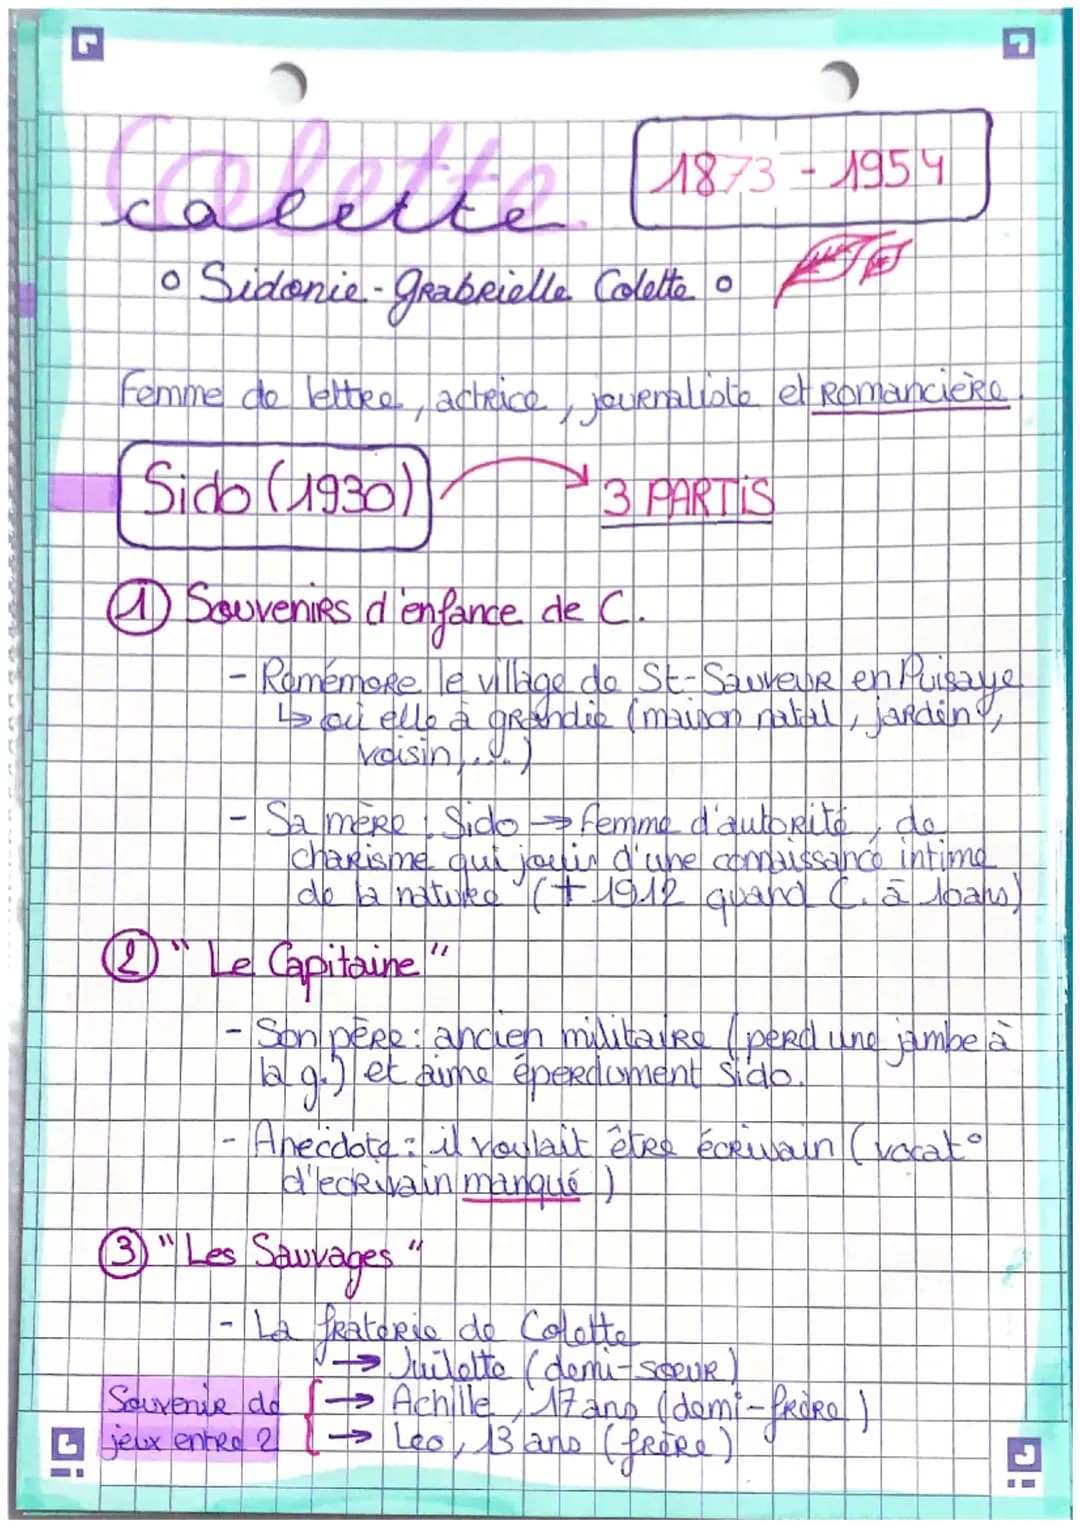 Colette
colette
1873 - 1954
° Sidonie-grabrielle Colette °
Femme de lettre, actrice, journaliste et Romancière.
Sido (1930) → 3 PARTIS
① Souvenirs d'enfance de C.
- Remémore le village de St-Sauveur en Puisaye
↳ où elle à grandie (maison natal, jardin,
voisin, ...)
- Sa mère : Sido → femme d'autorité, de
charisme qui jouir d'une connaissance intime
de la nature (+ 1912 quand C. à ans)
② "Le Capitaine"
- Son père : ancien militaire (perd une jambe à
la g.) et aime éperdument Sido.
- Anecdote : il voulait être écrivain (vocat°
d'ecrivain manqué)
③ "Les Sauvages"
- La fraterie de Colette
→ Juilette (demi-soeur)
Souvenir de { → Achille, 17 ans (demi-frère)
jeux entre 2 { → Léo, 13 ans (frère)